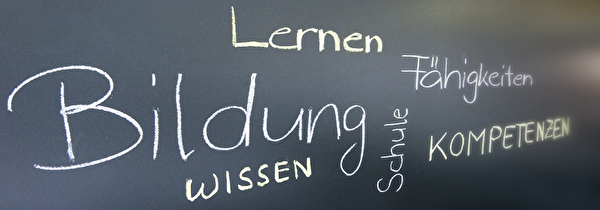 Lernen
Fähigkeiten
Bildung
Schule
KOMPETENZEN
WISSEN